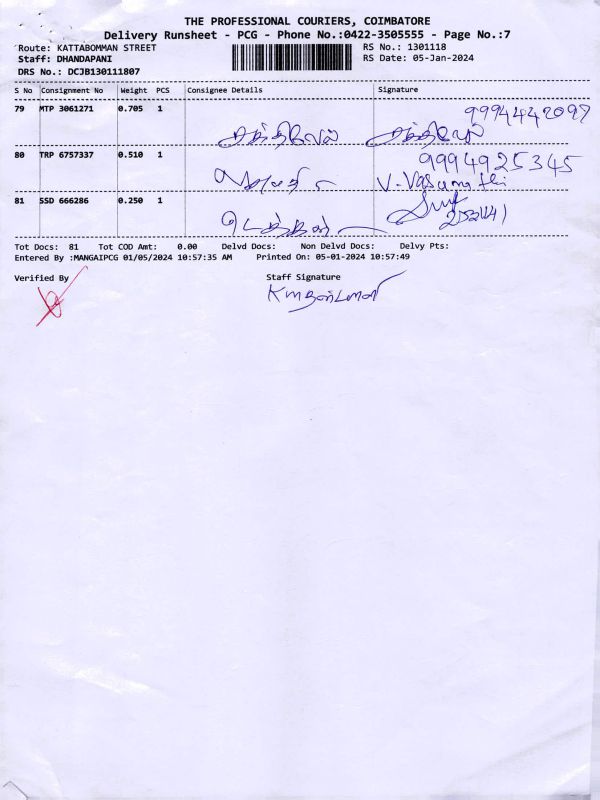 THE PROFESSIONAL COURIERS, COIMBATORE
Delivery Runsheet - PCG - Phone No.:0422-3505555 - Page No.:7
Route: KATTABOMMAN STREET RS No.: 1301118
Staff: DHANDAPANI RS Date: 05-Jan-2024
DRS No.: DCJB130111807
S No Consignment No Weight PCS Consignee Details Signature
79 MTP 3061271 0.705 1 சக்திவேல் சக்திவேல் 9994442097
80 TRP 6757337 0.510 1 9994925345
V. Vasumathi
81 SSD 666286 0.250 1
Tot Docs: 81 Tot COD Amt: 0.00 Delvd Docs: Non Delvd Docs: Delvy Pts:
Entered By :MANGAIPCG 01/05/2024 10:57:35 AM Printed On: 05-01-2024 10:57:49
Verified By Staff Signature